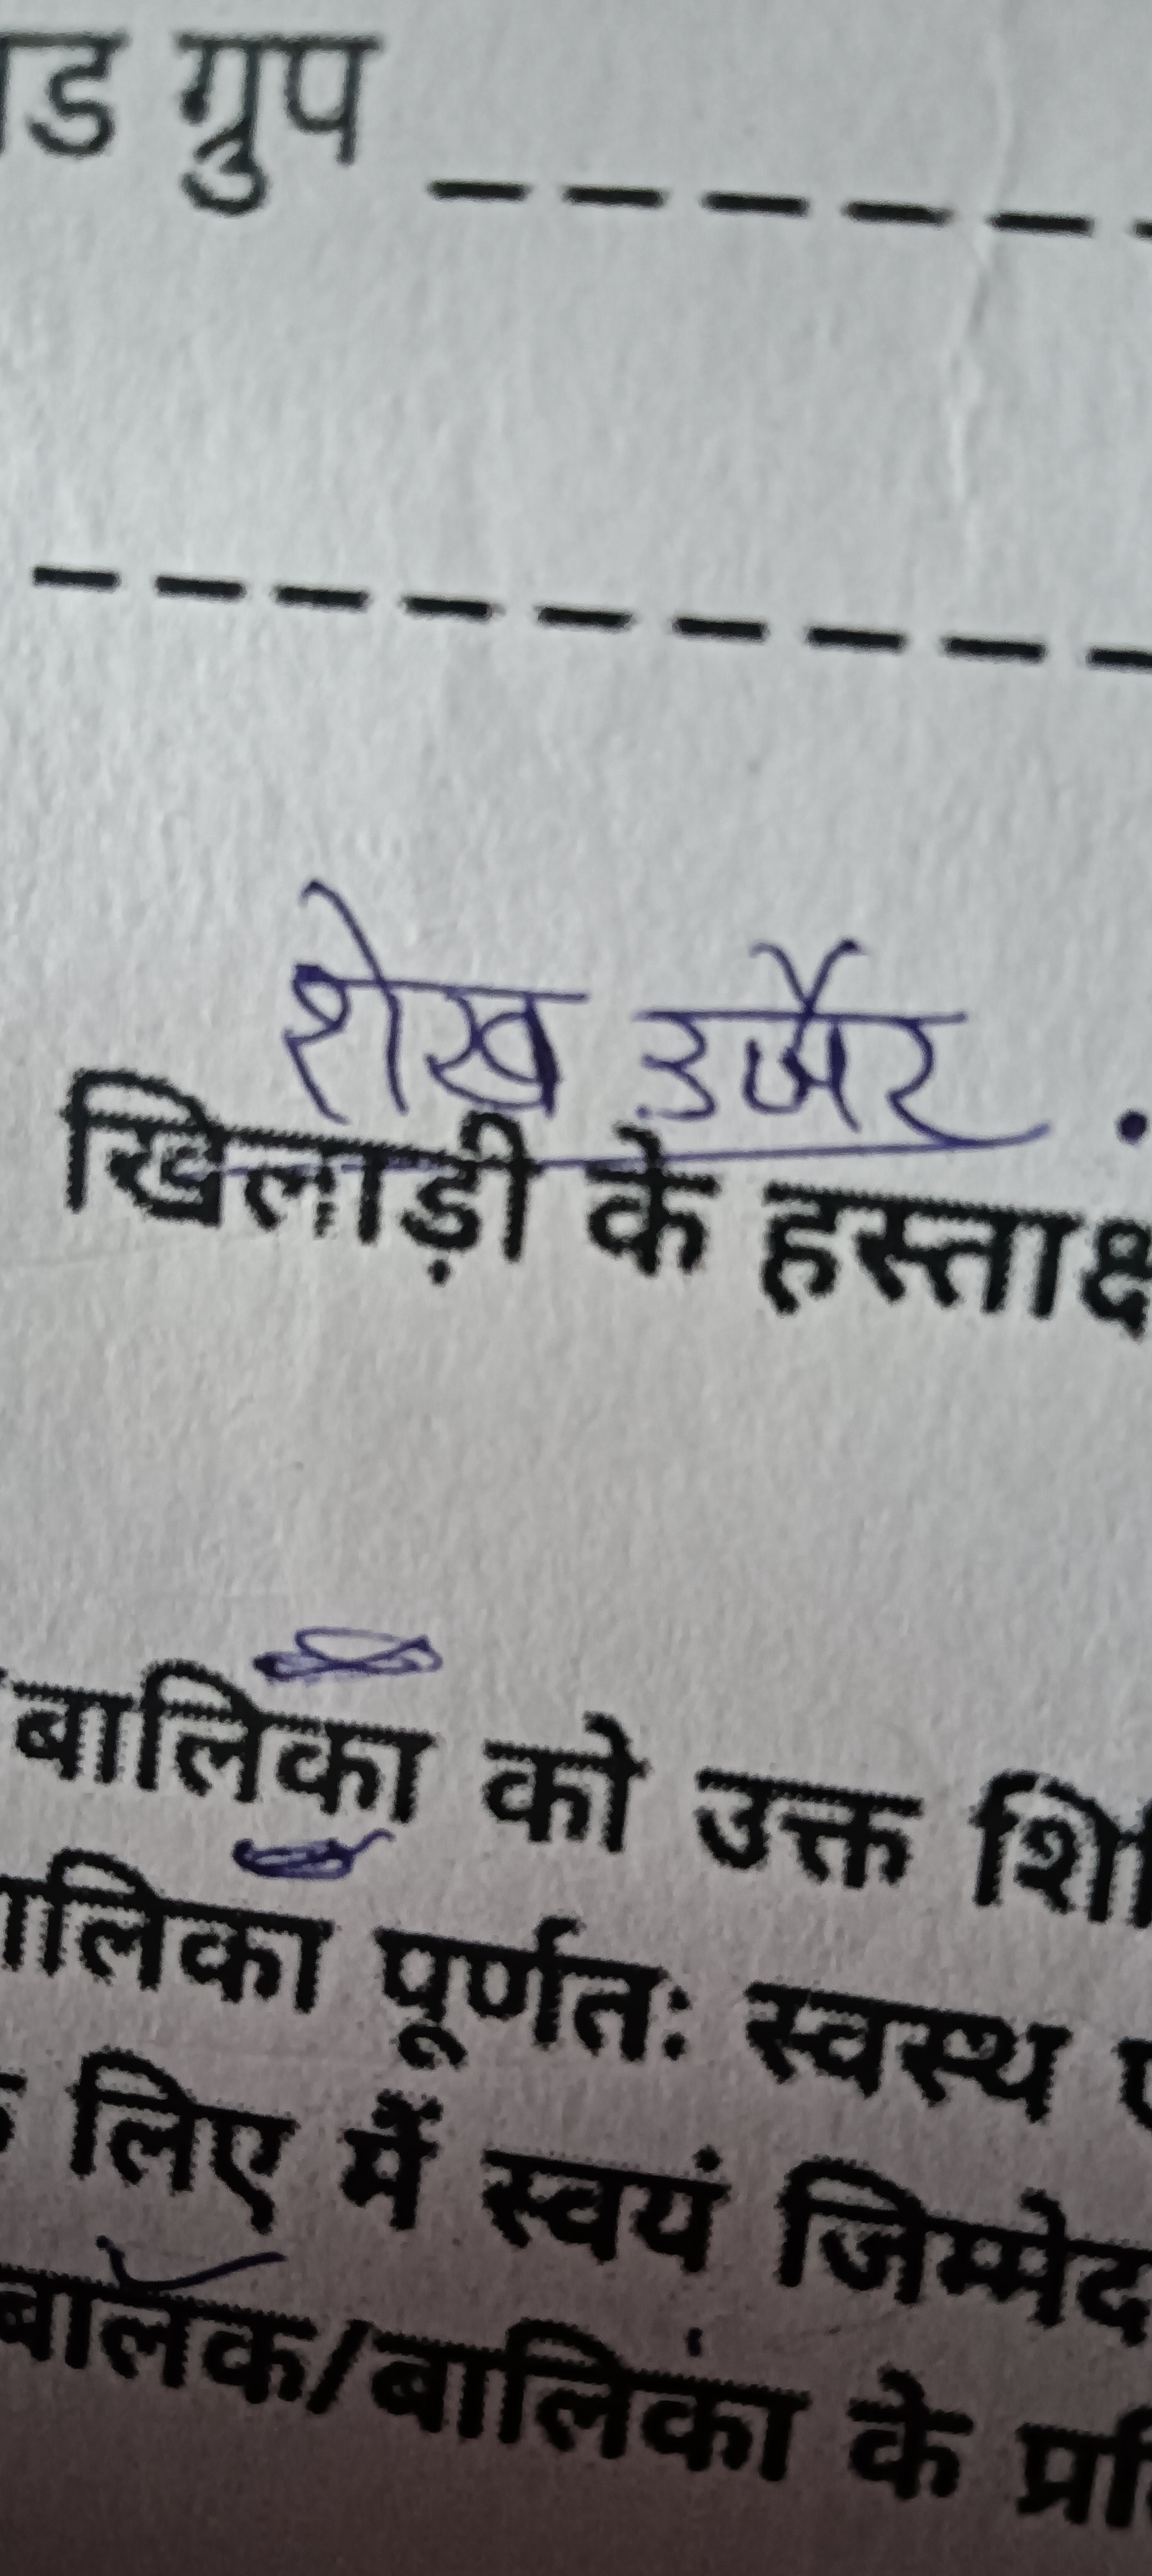 ड ग्रुप
शेख उजैर
खिलाड़ी के हस्ताक्ष
बालिका को उक्त शि
ालिका पूर्णतः स्वस्थ
लिए मैं स्वयं जिम्मेद
बालक/बालिका के प्रति